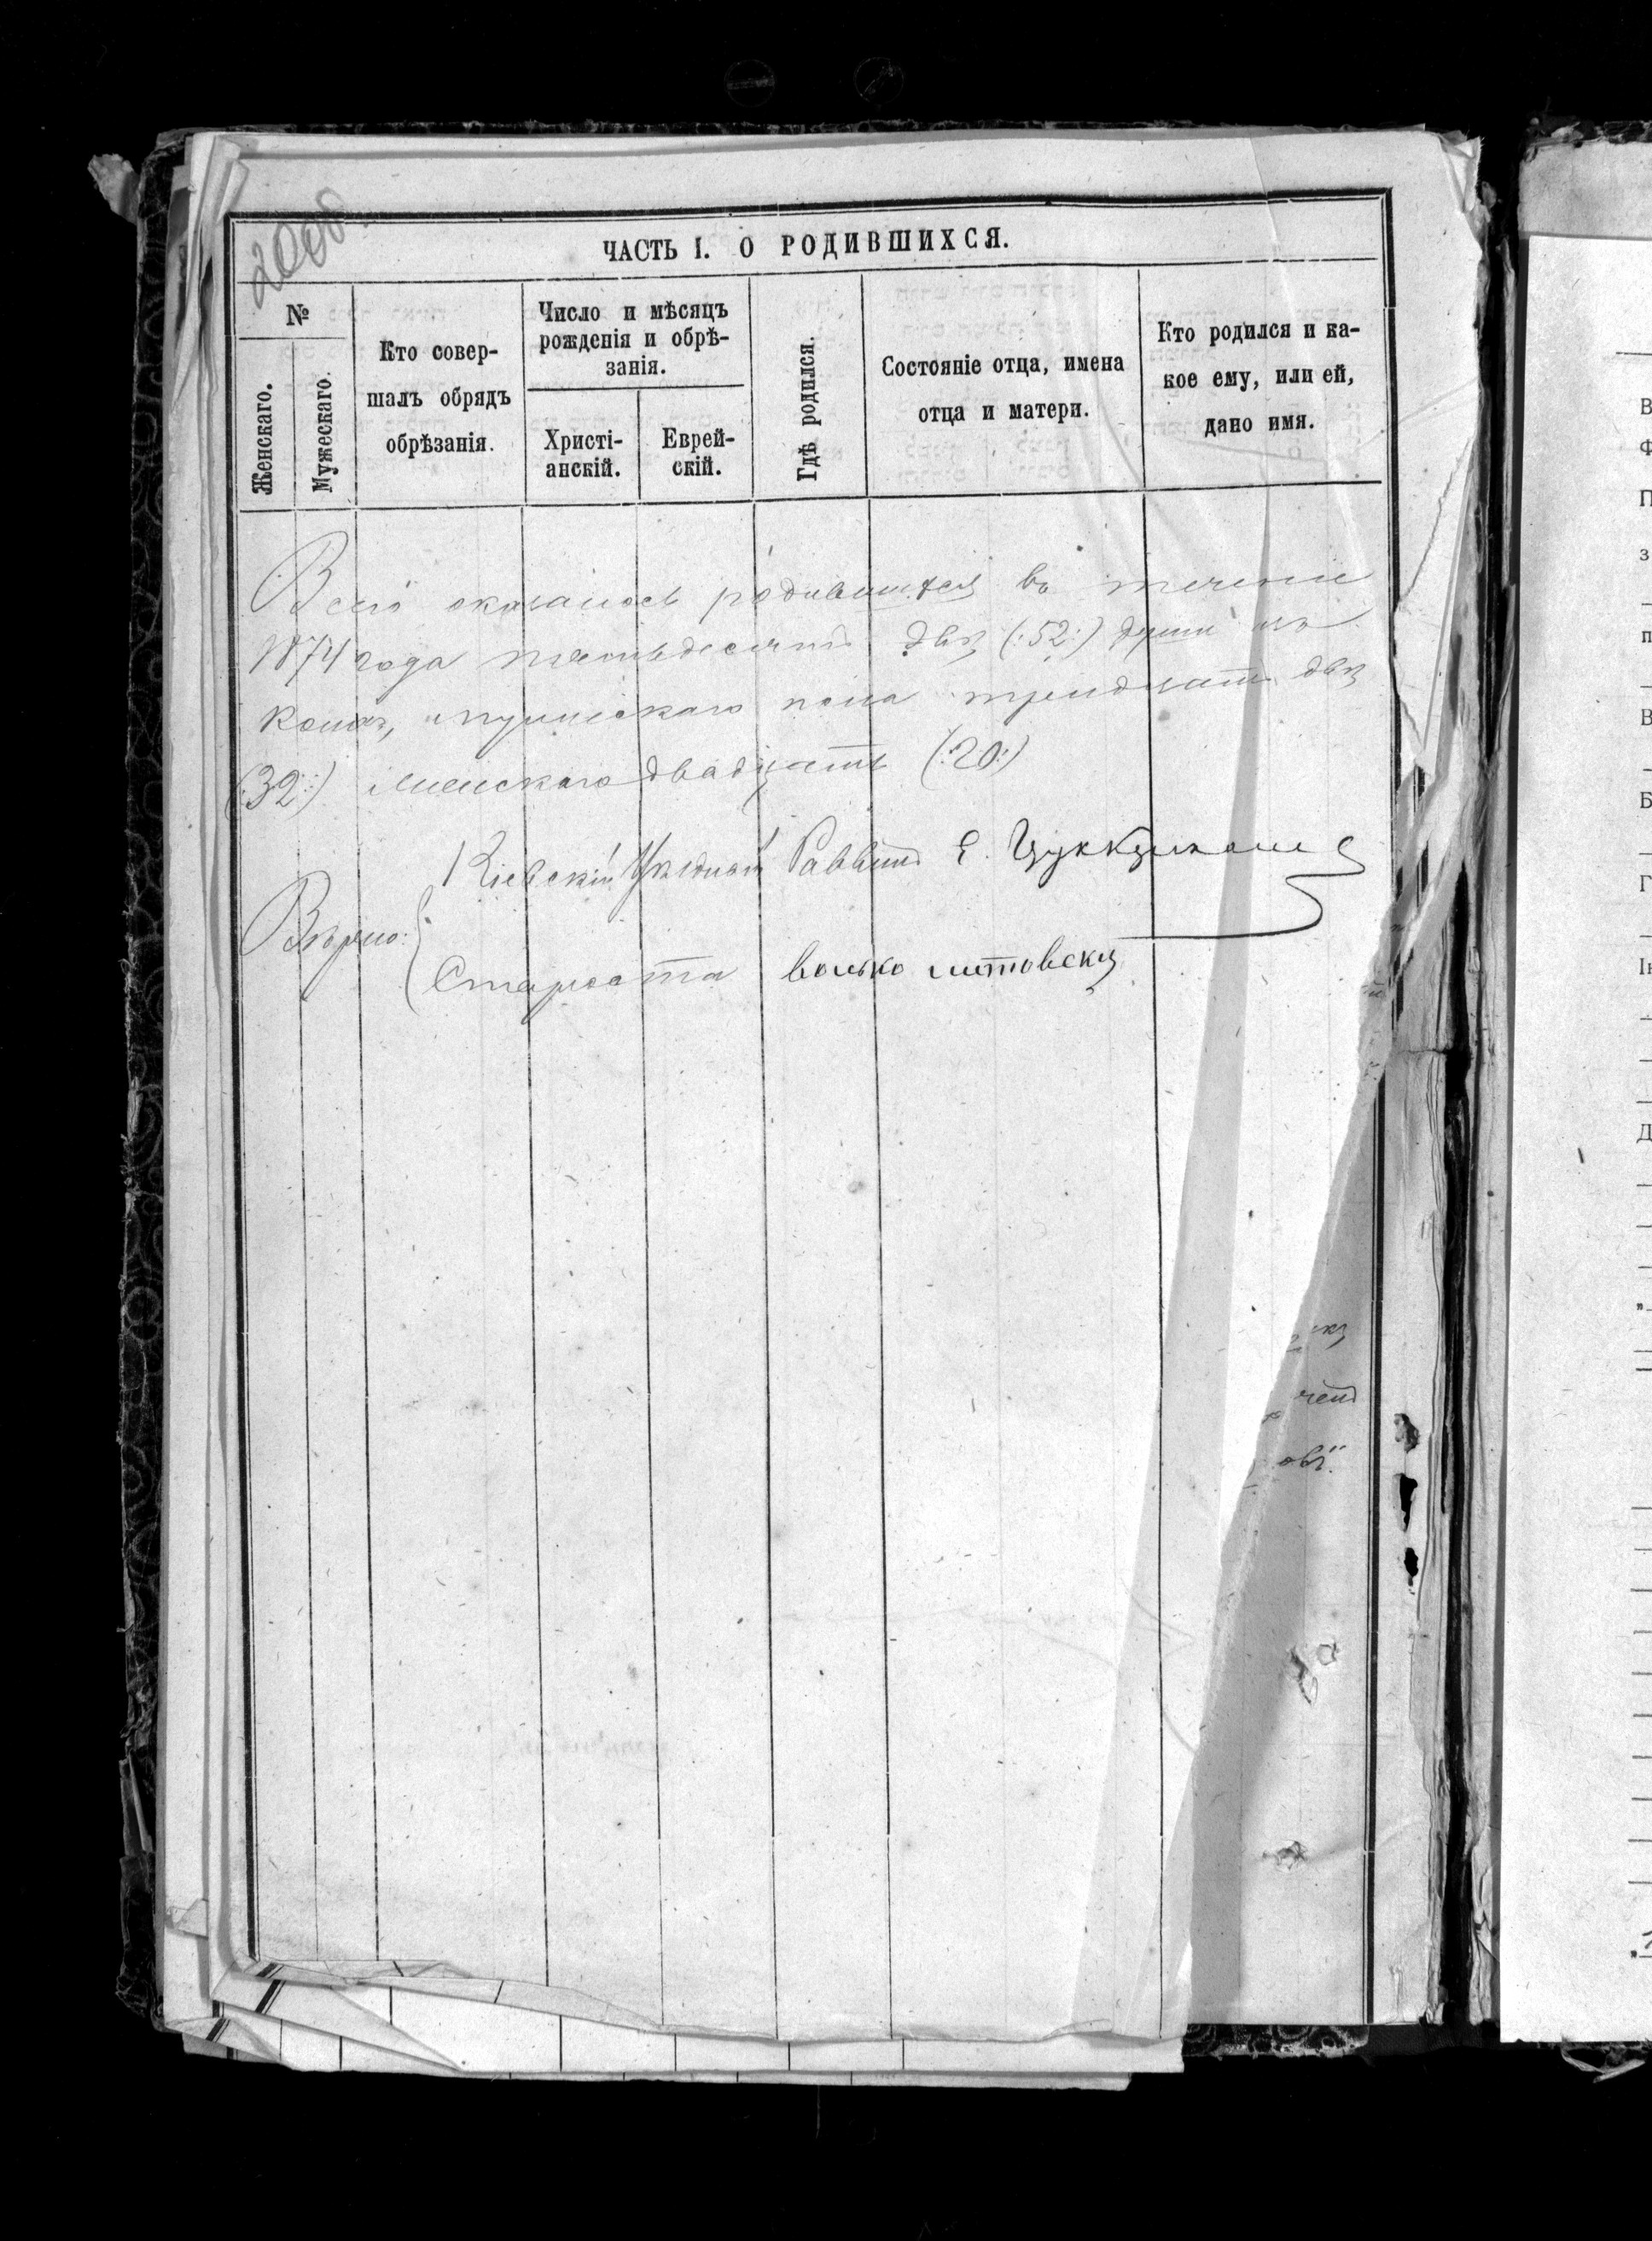 200об.
ЧАСТЬ I. О РОДИВШИХСЯ.
№
Женскаго.
Мужескаго.
Кто совер-
шалъ обрядъ
обрѣзанія.
Число и мѣсяцъ
рожденія и обрѣ-
занія.
Христі-
анскій.
Еврей-
скій.
Гдѣ родился.
Состояніе отца, имена
отца и матери.
Кто родился и ка-
кое ему, или ей,
дано имя.
Всего оказалось родившихся въ теченіе
1874 года пятьдесятъ двѣ (:52:) души изъ
коихъ, мужескаго пола тридцать двѣ
(:32:) женскаго двадцать (:20:)
Кіевскій Уѣздный Раввинъ Е. Цуккерманъ
Вѣрно:
Староста волько литовскій